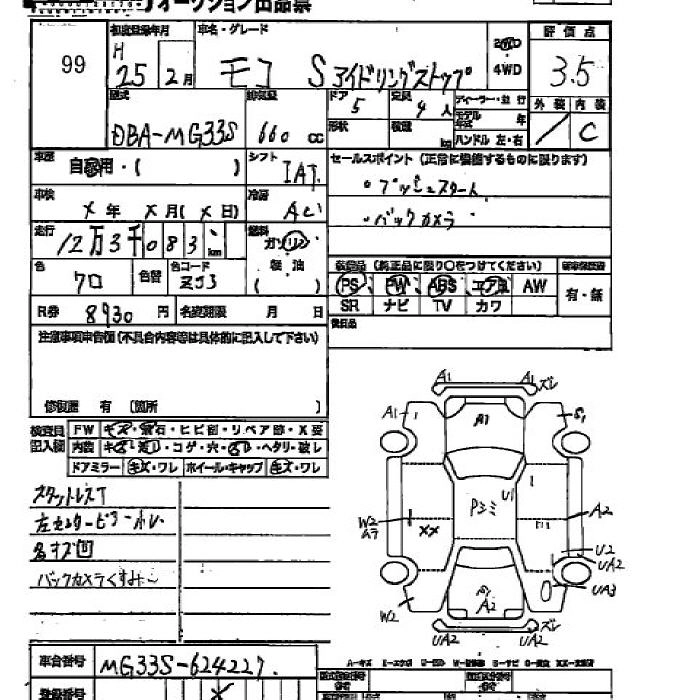 オークション出品票
99
初度登録年月
H 25年 2月
車名・グレード
モコ S アイドリングストップ
2WD
4WD
評価点
3.5
外装 内装
/ C
型式
DBA-MG33S
排気量
660 cc
ドア 5
定員 4人
形状
積載 kg
ディーラー・並行
モデル年式 年
ハンドル 左・右
車歴
自家用・( )
シフト
IAT
セールスポイント (正常に機能するものに限ります)
・プッシュスタート
・バックカメラ
車検
X年 X月(X日)
冷房
AC
走行
12万3千083 km
燃料
ガソリン
軽油
( )
色
クロ
色替
色コード
ZJ3
装備品 (純正品に限り○をつけてください)
PS PW ABS エアB AW
SR ナビ TV カワ
有・無
R券 8930円
名変期限 月 日
後日品
注意事項申告欄(不具合内容等は具体的に記入して下さい)
修復歴 有 〔箇所 〕
検査員記入欄
FW キズ・飛石・ヒビ割・リペア跡・X要
内装 キズ・汚レ・コゲ・穴・・ヘタリ・破レ
ドアミラー キズ・ワレ ホイール・キャップ キズ・ワレ
スタットレスT
左センターピラーホレ
各キズ凹
バックカメラくすみ
A1 A1 ズレ
A1 A1 S1
U1
Pシミ
W2 ムラ
XX
A2
U2
UA2
UA3
W2
A2
UA2 UA2 ズレ
A-キズ E-エクボ U-凹ミ W-補修跡 S-サビ C-腐食 XX-交換済
車台番号 MG33S-624227
登録番号 X